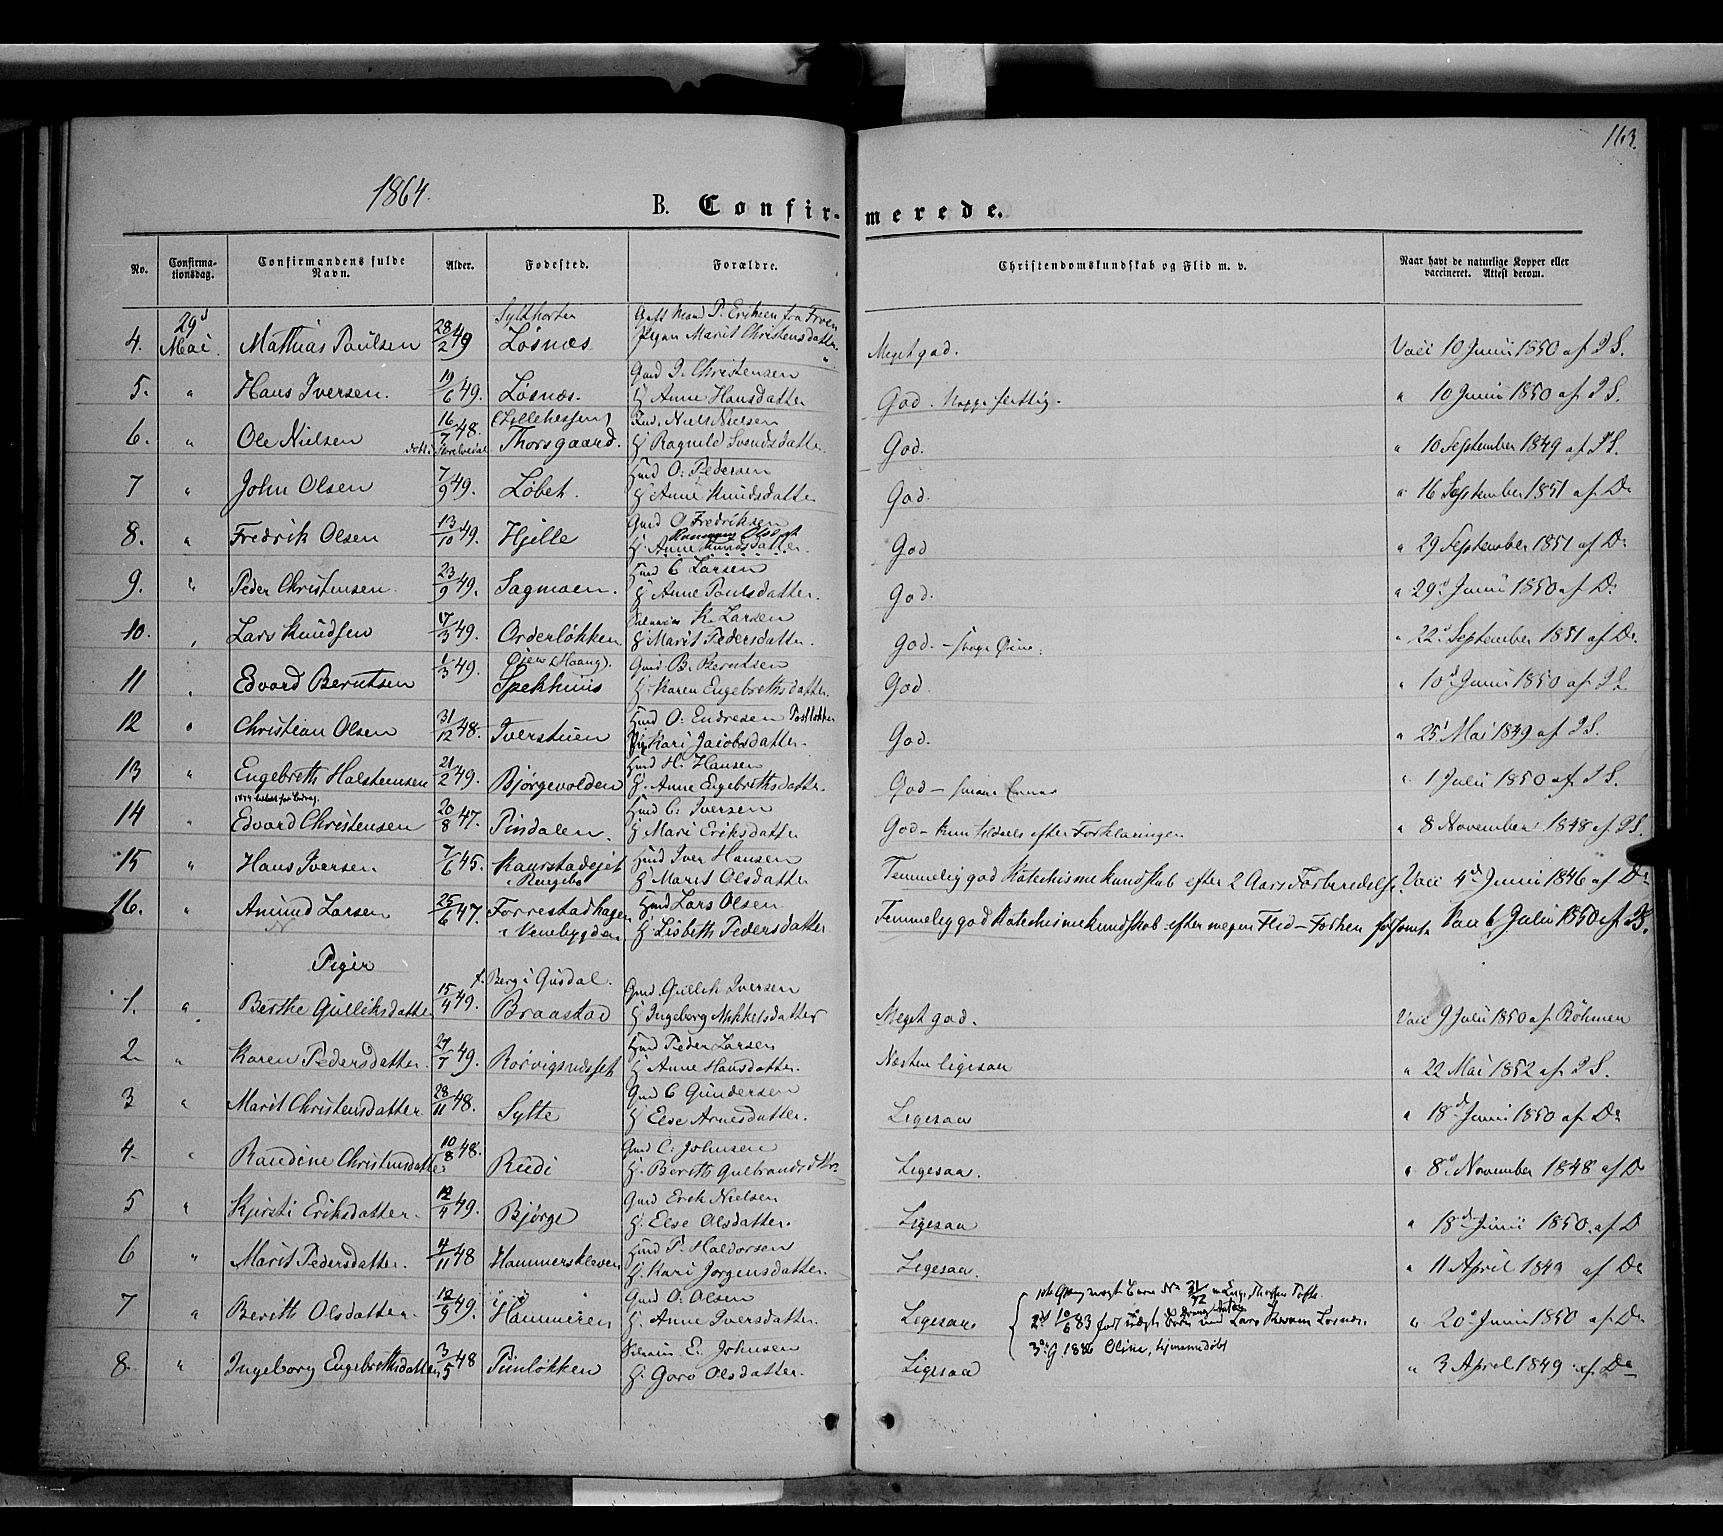 163.
1864.
B. Confirmerede.
No. Confirmationsdag. Confirmandens fulde Navn. Alder. Fødested. Forældre. Christendomskundskab og Flid m. v. Naar havt de naturlige Kopper eller vaccineret. Attest derom.
29d
4. Mai. Mathias Poulsen 28/2 49 Løsnæs P. Eriksen fra Fron Pigen Marit Christensdatter. Meget god. Vacc 10 Junii 1850 af J S.
5. " Hans Iversen. 19/6 49. Løsnæs. Gmd I. Christensen H Anne Hansdatter God. " 10 Junii 1850 af J S.
6. " Ole Nielsen 16/7 48. (Lillehessen) Thorsgaard. Niels Nielsen H Ragnild Svendsdatter God. " 10 September 1849 af J S.
7 " John Olsen 7/9 49. Løbet. Hmd O: Pedersen H Anne Knudsdatter God. " 16 September 1851 af Do
8. " Fredrik Olsen 13/10 49. Hjelle Gmd O Fredriksen H. Anne Knudsdatter. God " 29 September 1851 af Do
9. " Peder Christensen. 23/9 49. Sagmoen. Hmd C Larsen H Anne Poulsdatter. God. " 29d Junii 1850 af Do
10. " Lars Knudsen 17/3 49. Orderløkken K. Larsen H Marit Pedersdatter. God. - svage Øine. " 22d September 1851 af Do
11 " Edvard Berntsen 1/3 49. Øien (Haang). Spekhuus Gmd B. Berntsen H. Karen Engebrethsdatter. God. " 10d Junii 1850 af J S
12 " Christian Olsen 31/12 48. Iverstuen Hmd O: Endresen Kari Jacobsdatter. God. " 25d Mai 1849 af J S.
13 " Engebreth Halstensen 21/2 49. Bjørgevolden Hmd H. Hansen H. Anne Engebrethsdatter. God - " 1 Julii 1850 af J S.
14 " Edvard Christensen 20/8 47. Pindalen. Hmd C: Iversen H Mari Eriksdatter God - kun tildeels efter Forklaringen " 8 November 1848 af J S.
15 " Hans Iversen 7/6 45. Kaarstadejet i Ringebo Hmd Iver Hansen H Marit Olsdatter Temmelig god Katechismekundskab efter 2 Aars Forberedelse. Vacc 4d Junii 1846 af Do
16. " Amund Larsen 25/6 47. Forrestadhagen i Venebygden Hmd Lars Olsen H Lisbeth Pedersdatter Temmelig god Katechismekundskab efter megen Flid - Vac 6 Julii 1850 af J S.
Piger
1. " Berthe Gulliksdatter 15/4 49. f. Berg i Gusdal. Braastad Gmd. Gullik Iversen H Ingeborg Mikkelsdatter Meget god. Vacc 9 Julii 1850 af Bøhmen
2. " Karen Pedersdatter. 27/7 49. Rorvigsødejet Hmd Peder Larsen H Anne Hansdatter. Næsten ligesaa " 22 Mai 1852 af J S.
3 " Marit Christensdatter 28/11 48. Sylte Gmd C Gundersen H Else Arnesdatter. Ligesaa " 18d Junii 1850 af Do
4. " Randine Christensdatter 10/8 48. Rudi Gmd C. Johnsen H. Berith Gulbrandsdtr. Ligesaa. " 8d November 1848 af D
5 " Kjersti Eriksdatter. 12/4 49. Bjørge Gmd Erik Nielsen H. Else Olsdatter. Ligesaa " 18d Junii 1850. af D
6 " Marit Pedersdatter. 4/11 48 Hammerskleven Hmd P. Haldorsen H. Kari Jorgensdatter. Ligesaa. " 11 April 1849 af Do
7 " Berith Olsdatter. 12/9 49. Hammeren Gmd O. Olsen H. Anne Iversdatter. Ligesaa. 3d g. 1886 Oline, hjemmedøbt " 20d Junii 1850 af Do
8. " Ingeborg Engebrethsdatter 3/5 48 Tunløkken E. Johnsen H. Goro Olsdatter. Ligesaa " 3 April 1849 af Do